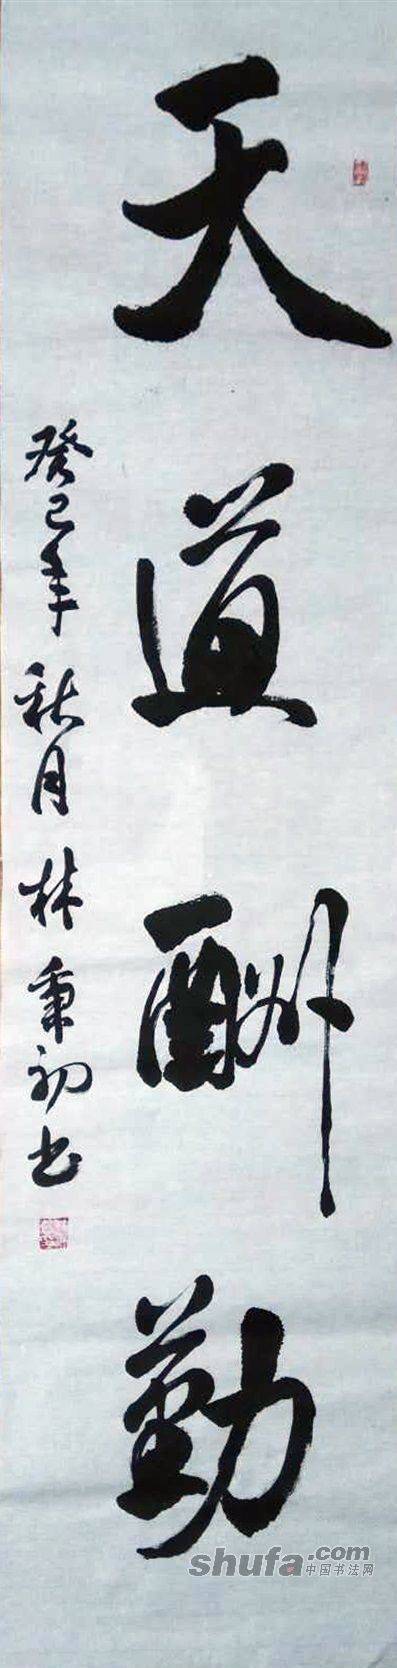 天道酬勤
癸巳年秋月林秉初书
shufa.com
中国书法网